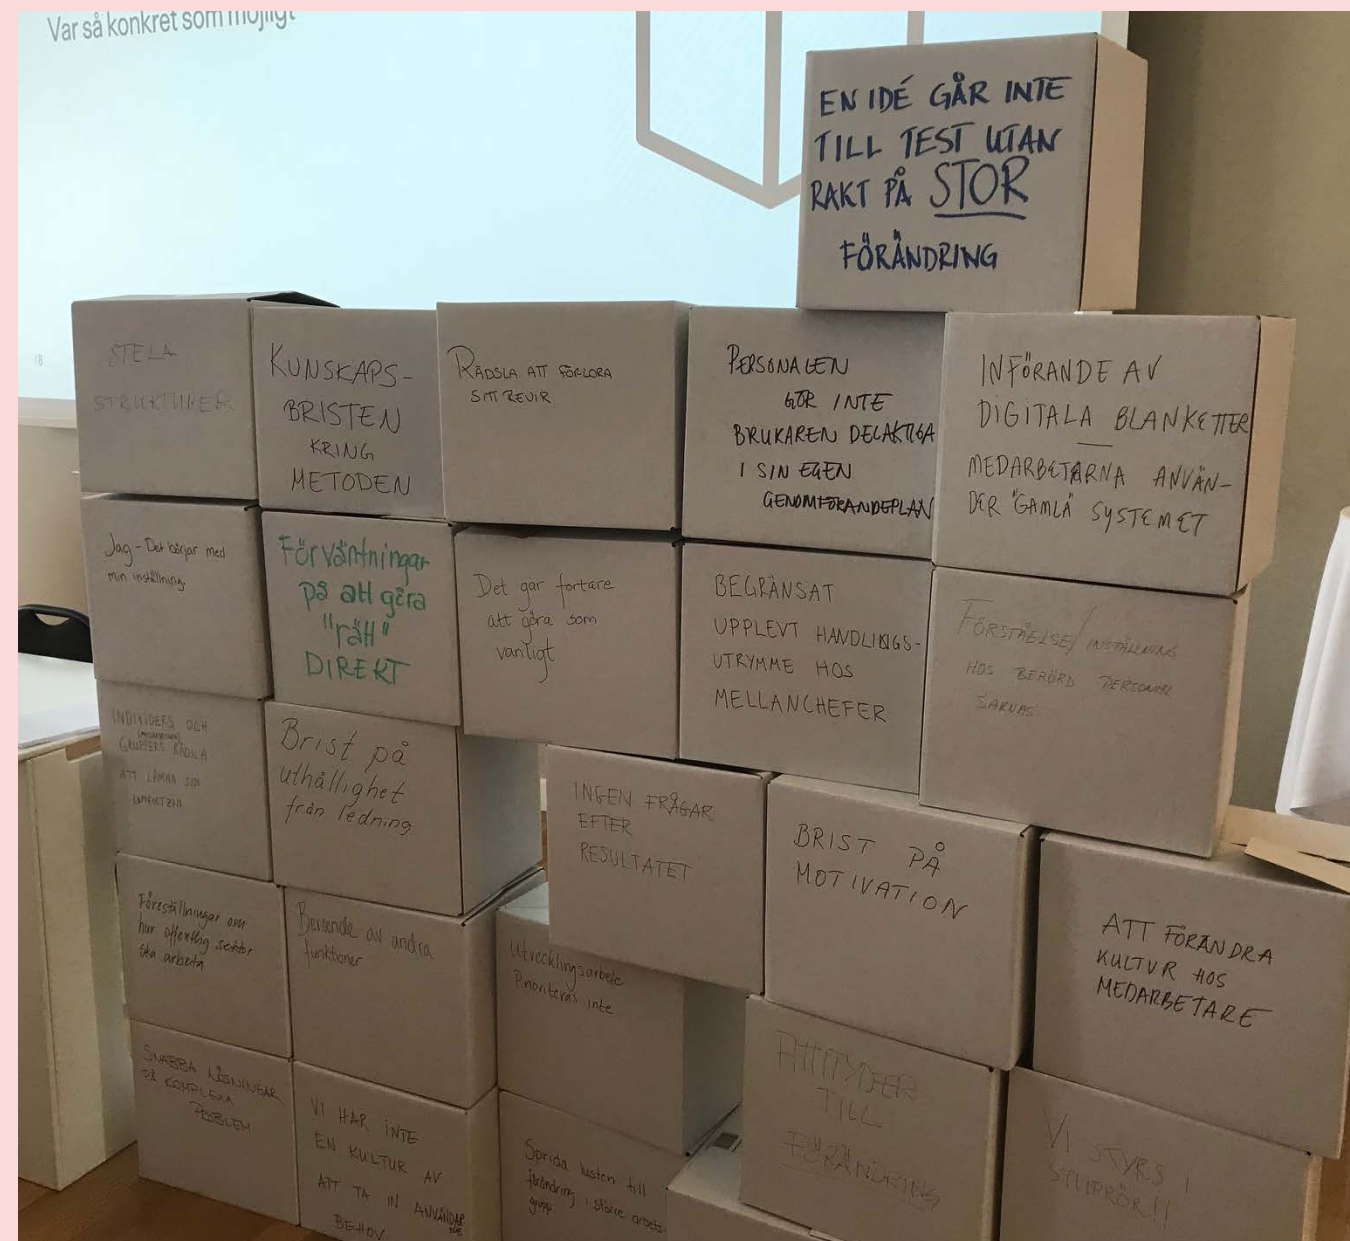 Var så konkret som möjligt
18
EN IDÉ GÅR INTE
TILL TEST UTAN
RAKT PÅ STOR
FÖRÄNDRING
STELA
STRUKTURER
KUNSKAPS-
BRISTEN
KRING
METODEN
RÄDSLA ATT FÖRLORA
SITT REVIR
PERSONALEN
GÖR INTE
BRUKAREN DELAKTIGA
I SIN EGEN
GENOMFÖRANDEPLAN
INFÖRANDE AV
DIGITALA BLANKETTER
—
MEDARBETARNA ANVÄN-
DER "GAMLA" SYSTEMET
Jag - Det börjar med
min inställning.
Förväntningar
på att göra
"rätt"
DIREKT
Det går fortare
att göra som
vanligt
BEGRÄNSAT
UPPLEVT HANDLINGS-
UTRYMME HOS
MELLANCHEFER
FÖRSTÅELSE/INSTÄLLNING
HOS BERÖRD PERSONAL
SAKNAS
INDIVIDERS OCH
GRUPPERS RÄDSLA
ATT LÄMNA SIN
Brist på
uthållighet
från ledning
INGEN FRÅGAR
EFTER
RESULTATET
BRIST PÅ
MOTIVATION
ATT FÖRÄNDRA
KULTUR HOS
MEDARBETARE
Föreställningar om
hur offentlig sektor
ska arbeta
Beroende av andra
funktioner
Utvecklingsarbete
Prioriteras inte
SNABBA LÖSNINGAR
PÅ KOMPLEXA
PROBLEM
VI HAR INTE
EN KULTUR AV
ATT TA IN ANVÄNDAR
BEHOV
Sprida lusten till
förändring i större arbets-
grupp
ATTITYDER
TILL
FÖRÄNDRING
VI STYRS I
STUPRÖR!!